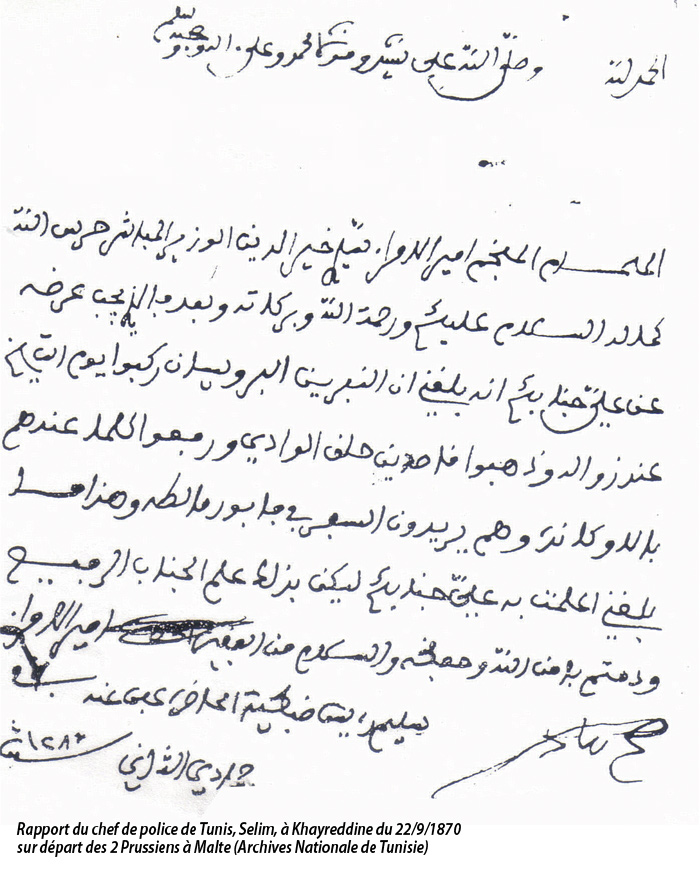 الحمد لله وصلى الله على سيدنا ومولانا محمد وعلى آله وصحبه وسلم
الهمـــام المفخم امير الامراء سيدي خير الدين الوزير المباشر حرس الله
كماله السلام عليكم ورحمة الله وبركاته وبعد فالذي يجب عرضه
عن علي جنابكم انه بلغني ان النفرين البروسيان ركبوا يوم التاريخ
عند زوال وذهبوا قاصدين حلق الوادي ورفعوا كلما عندهم
بالوكاندة وهم يريدون السفر في بابور مالطه وهذا ما
بلغني اعلمت به علي جنابكم ليكن بذلك علم الجناب الرفيع
ودمتم بامن الله وحفظه والسلام من الفقير امير الامراء
سليم رئيس ضبطية الحاضرة عفي عنه في
جمادي الثاني سنة ١٢٨٧
Rapport du chef de police de Tunis, Selim, à Khayreddine du 22/9/1870
sur départ des 2 Prussiens à Malte (Archives Nationale de Tunisie)